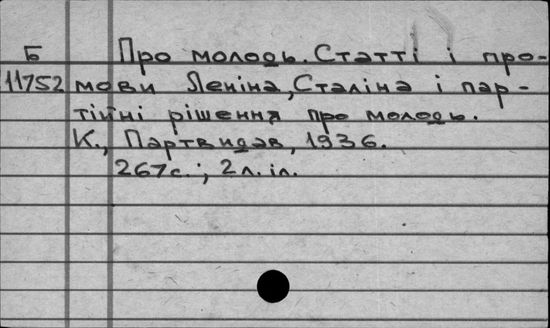 Б Про молодь. Статті і про-
11752 мови Леніна, Сталіна і пар-
тійні рішення про молодь.
К., Партвидав, 1936.
267с.; 2л. іл.